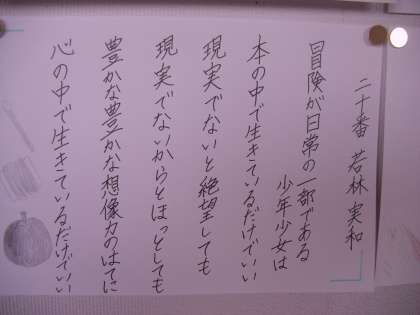 二十番 若林 実和
冒険が日常の一部である
少年少女は
本の中で生きているだけでいい
現実でないと絶望しても
現実でないからとほっとしても
豊かな豊かな想像力のはてに
心の中で生きているだけでいい